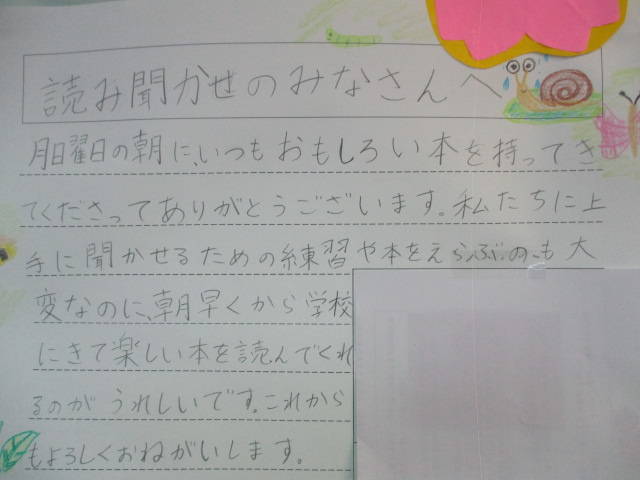 読み聞かせのみなさんへ
月曜日の朝に、いつもおもしろい本を持ってき
てくださってありがとうございます。私たちに上
手に聞かせるための練習や本をえらぶのも大
変なのに、朝早くから学校
にきて楽しい本を読んでくれ
るのがうれしいです。これから
もよろしくおねがいします。